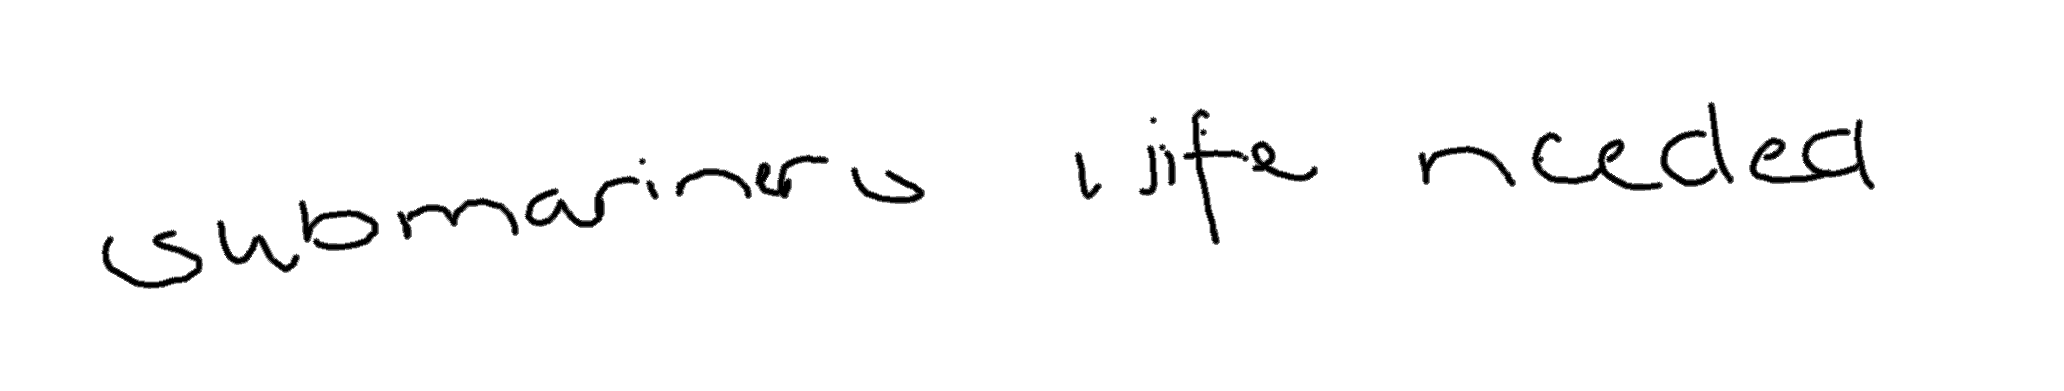 submariners wife needed